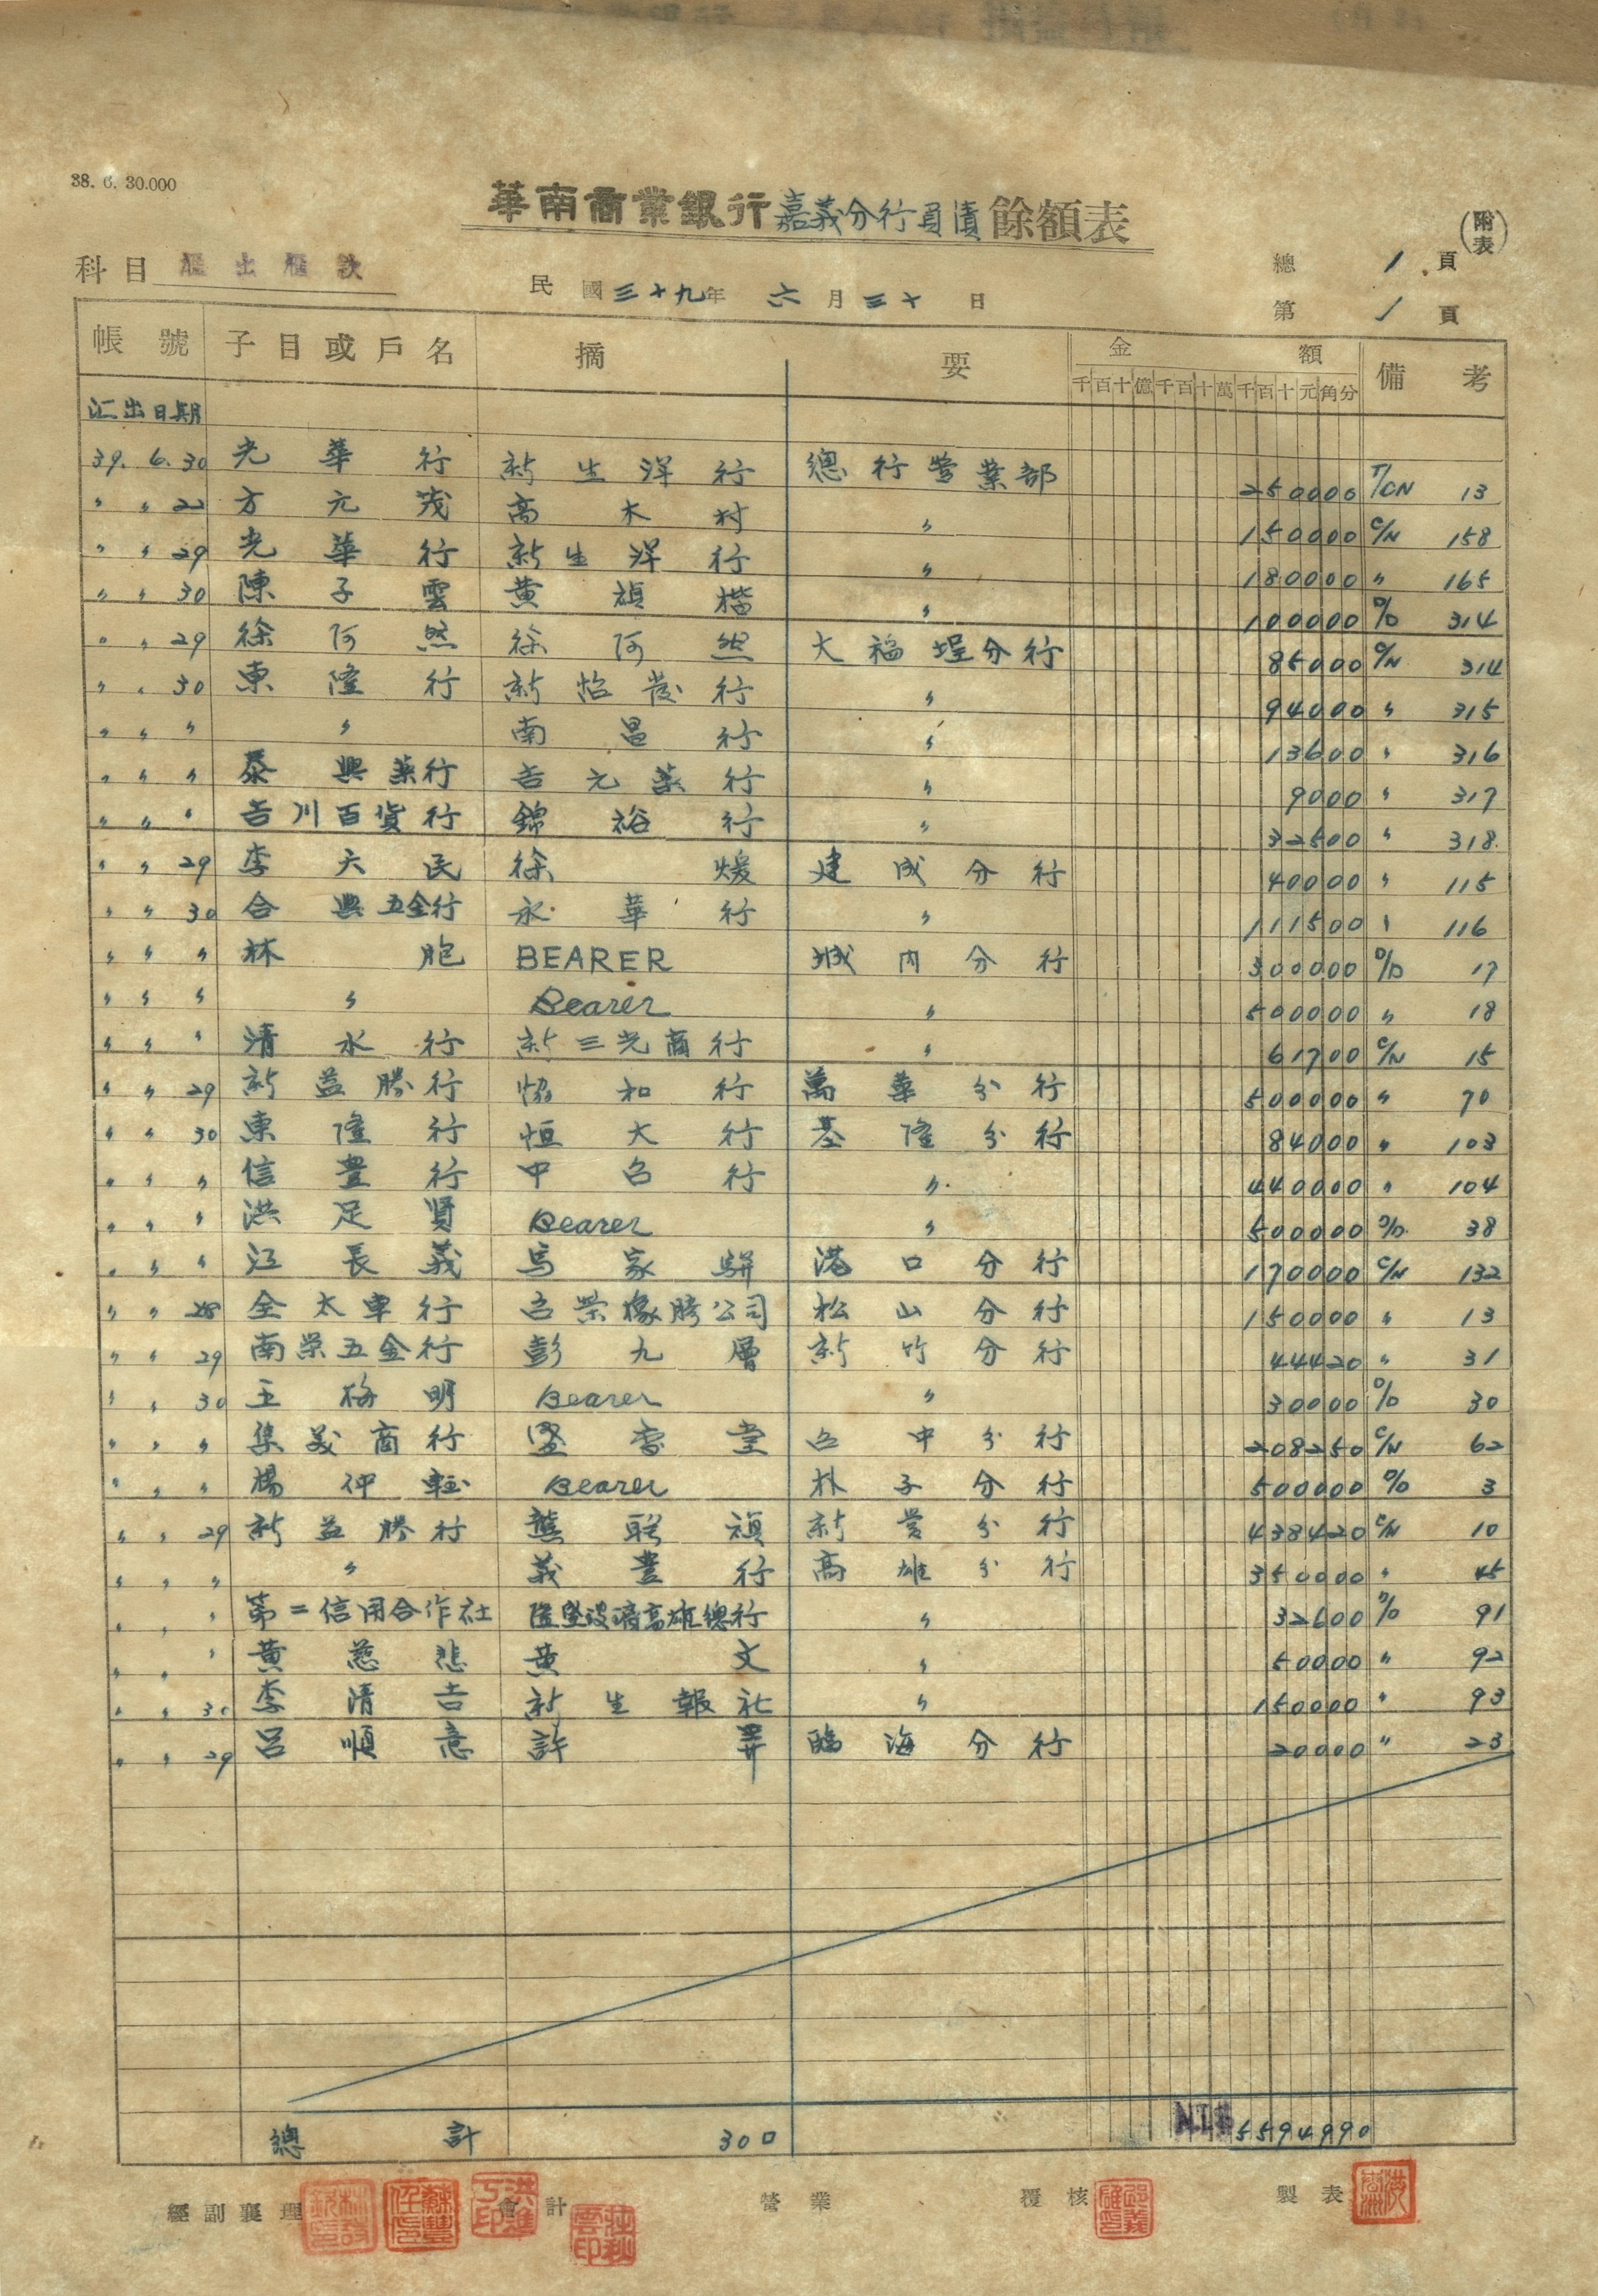 38. 6. 30.000
華南商業銀行嘉義分行負債餘額表
(附表)
科目 匯出匯款
民國三十九年 六月三十日
總 1 頁
第 1 頁
帳號 子目或戶名 摘要 金額 備考
千百十億千百十萬千百十元角分
汇出日期
39. 6. 30 光華行 新生洋行 總行營業部 250000 T/CN 13
〃 〃 22 方元茂 高木村 〃 150000 C/N 158
〃 〃 29 光華行 新生洋行 〃 180000 〃 165
〃 〃 30 陳子雲 黄禎楷 〃 100000 O/D 314
〃 〃 29 徐阿然 徐阿然 大稻埕分行 85000 C/N 314
〃 〃 30 東隆行 新怡發行 〃 94000 〃 315
〃 〃 〃 〃 南昌行 〃 13600 〃 316
〃 〃 〃 泰興药行 吉元药行 〃 9000 〃 317
〃 〃 〃 吉川百貨行 錦裕行 〃 32500 〃 318
〃 〃 29 李天民 徐煖 建成分行 40000 〃 115
〃 〃 30 合興五金行 永華行 〃 111500 〃 116
〃 〃 〃 林胞 BEARER 城内分行 300000 O/D 17
〃 〃 〃 〃 Bearer 〃 500000 〃 18
〃 〃 〃 清水行 新三光商行 〃 61700 C/N 15
〃 〃 29 新益勝行 協和行 萬華分行 500000 〃 70
〃 〃 30 東隆行 恒大行 基隆分行 84000 〃 103
〃 〃 〃 信豊行 中台行 〃 440000 〃 104
〃 〃 〃 洪足賢 Bearer 〃 500000 O/D 38
〃 〃 〃 江長義 馬家駢 港口分行 170000 C/N 132
〃 〃 28 全太車行 台榮橡膠公司 松山分行 150000 〃 13
〃 〃 29 南榮五金行 彭九層 新竹分行 44420 〃 31
〃 〃 30 王梅明 Bearer 〃 30000 O/D 30
〃 〃 〃 集美商行 盛香堂 台中分行 208250 C/N 62
〃 〃 〃 楊仲 Bearer 朴子分行 500000 O/D 3
〃 〃 29 新益勝行 龔聯禎 新營分行 438420 C/N 10
〃 〃 〃 〃 義豊行 高雄分行 350000 〃 45
〃 〃 〃 第二信用合作社 隆堅玻璃高雄總行 〃 32600 O/D 91
〃 〃 〃 黄慈悲 黄文 〃 50000 〃 92
〃 〃 30 李清吉 新生報社 〃 150000 〃 93
〃 〃 29 呂順意 許 臨海分行 20000 〃 23
總計 30口 NT$ 5594990
經副襄理 會計 營業 覆核 製表